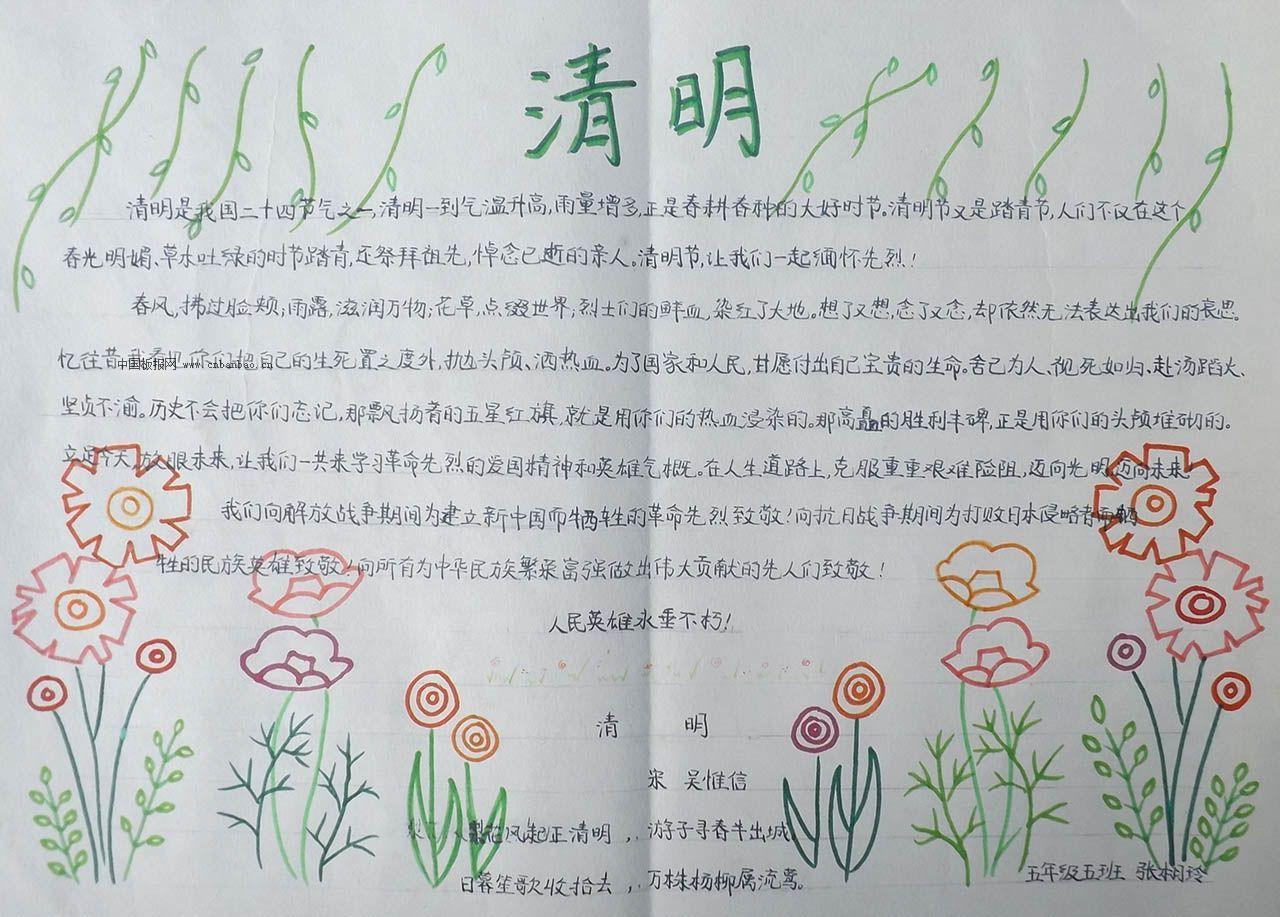 清明
清明是我国二十四节气之一,清明一到气温升高,雨量增多,正是春耕春种的大好时节。清明节又是踏青节,人们不仅在这个
春光明媚、草木吐绿的时节踏青,还祭拜祖先,悼念已逝的亲人。清明节,让我们一起缅怀先烈!
春风,拂过脸颊;雨露,滋润万物;花草,点缀世界;烈士们的鲜血,染红了大地。想了又想,念了又念,却依然无法表达出我们的哀思。
忆往昔,你们把自己的生死置之度外,抛头颅、洒热血。为了国家和人民,甘愿付出自己宝贵的生命。舍己为人、视死如归、赴汤蹈火、
中国板报网 www.cnbanbao.cn
坚贞不渝。历史不会把你们忘记,那飘扬着的五星红旗,就是用你们的热血浸染的。那高矗的胜利丰碑,正是用你们的头颅堆砌的。
立足今天,放眼未来,让我们一共来学习革命先烈的爱国精神和英雄气概。在人生道路上,克服重重艰难险阻,迈向光明,迈向未来!
我们向解放战争期间为建立新中国而牺牲的革命先烈致敬!向抗日战争期间为打败日本侵略者而牺
牲的民族英雄致敬!向所有为中华民族繁荣富强做出伟大贡献的先人们致敬!
人民英雄永垂不朽!
清 明
宋 吴惟信
梨花风起正清明,游子寻春半出城
日暮笙歌收拾去,万株杨柳属流莺。
五年级五班 张栩玲